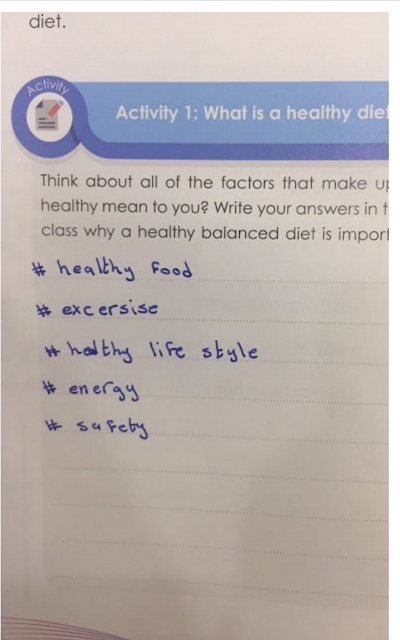 diet.
Activity
Activity 1: What is a healthy die
Think about all of the factors that make u
healthy mean to you? Write your answers in t
class why a healthy balanced diet is impor
# healthy Food
# excersise
# halthy life style
# energy
# safety